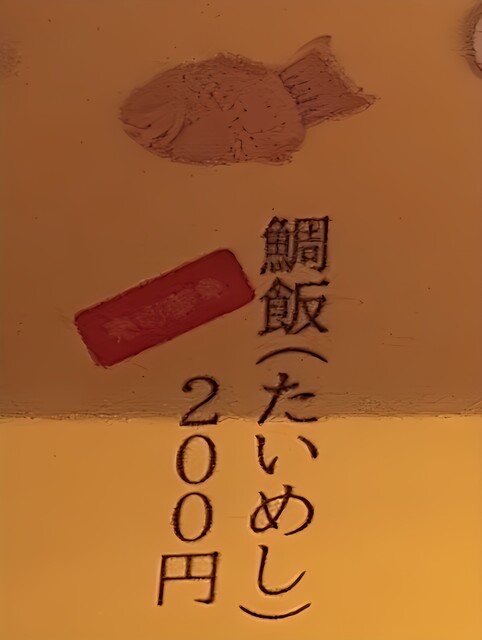 鯛飯(たいめし)
２００円